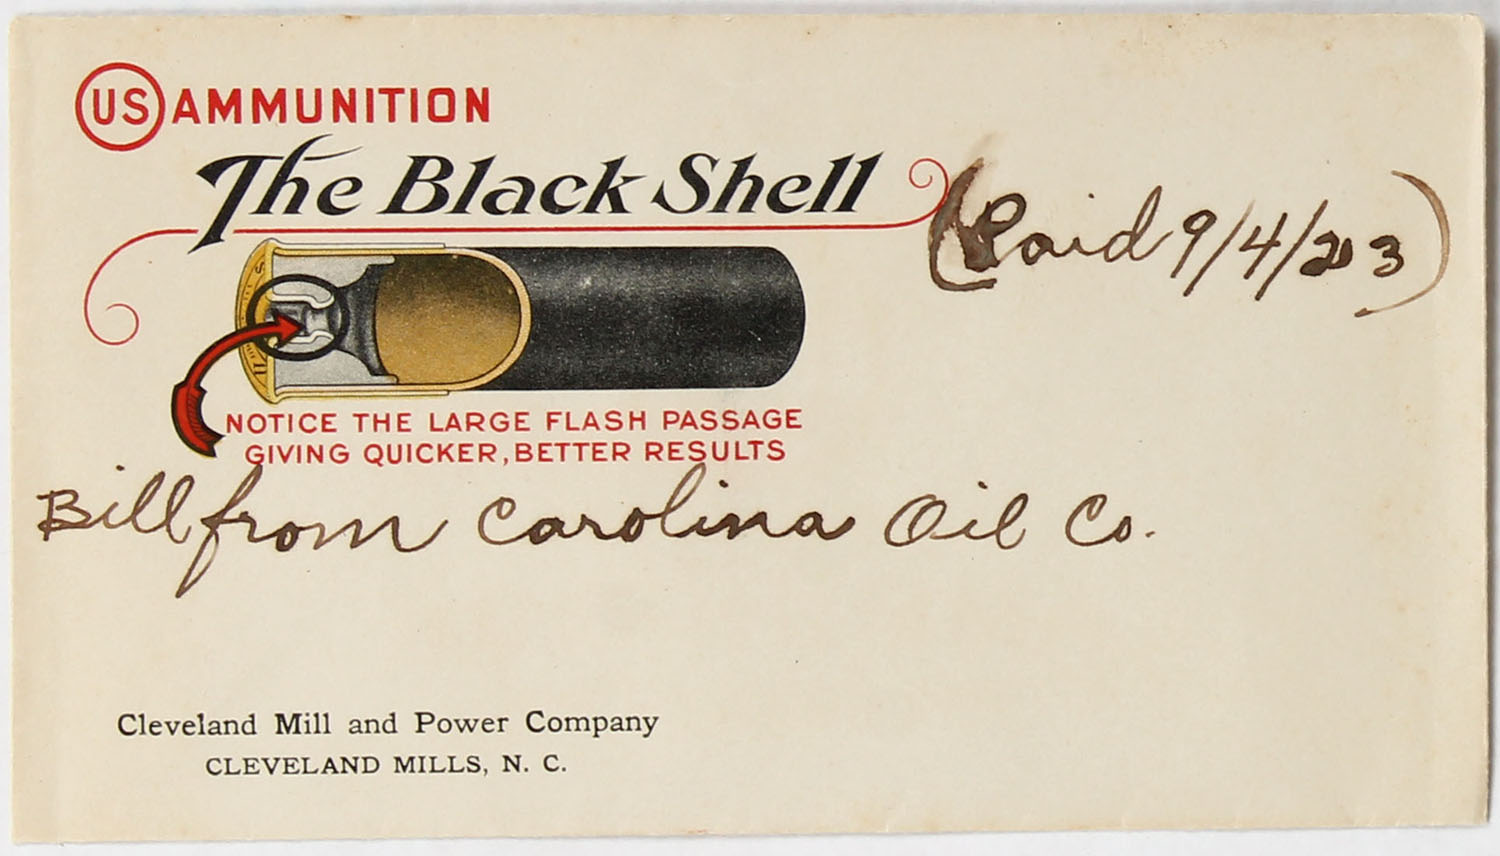 US AMMUNITION
The Black Shell
(Paid 9/4/203)
NOTICE THE LARGE FLASH PASSAGE
GIVING QUICKER, BETTER RESULTS
Bill from Carolina Oil Co.
Cleveland Mill and Power Company
CLEVELAND MILLS, N. C.